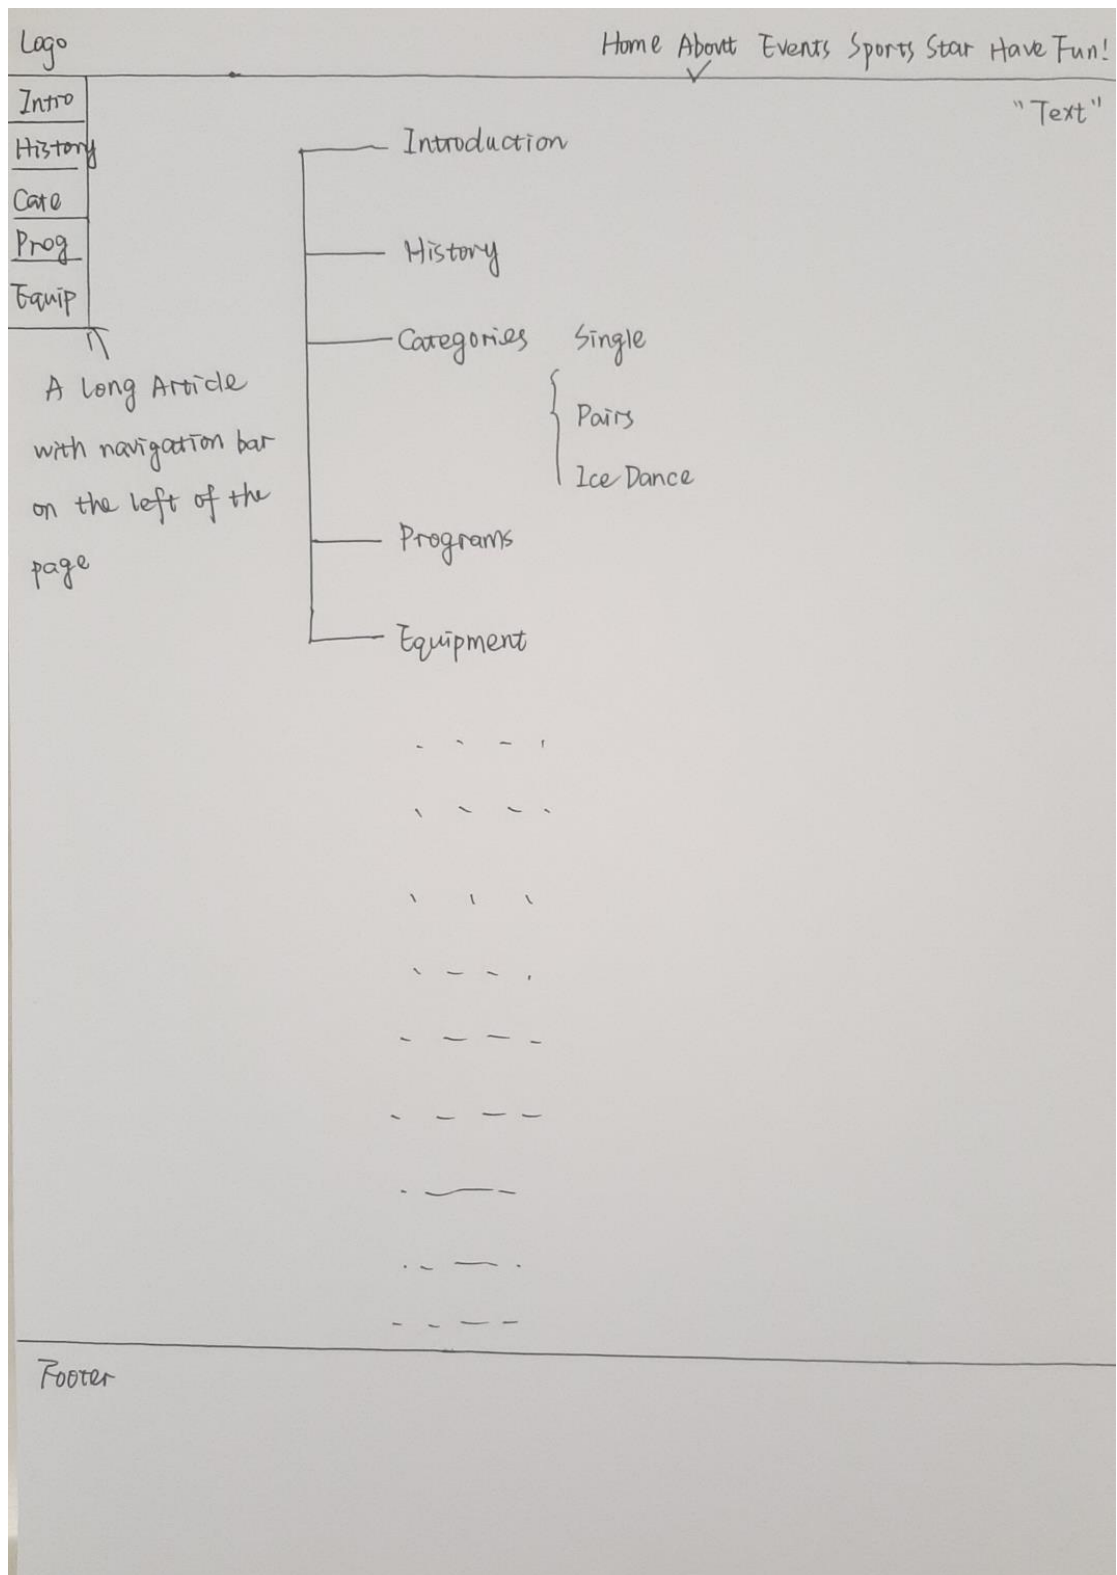 Logo
Home About Events Sports Star Have Fun!
"Text"
Intro
History
Cate
Prog
Equip
A Long Article
with navigation bar
on the left of the
page
Introduction
History
Categories Single
Pairs
Ice Dance
Programs
Equipment
Footer